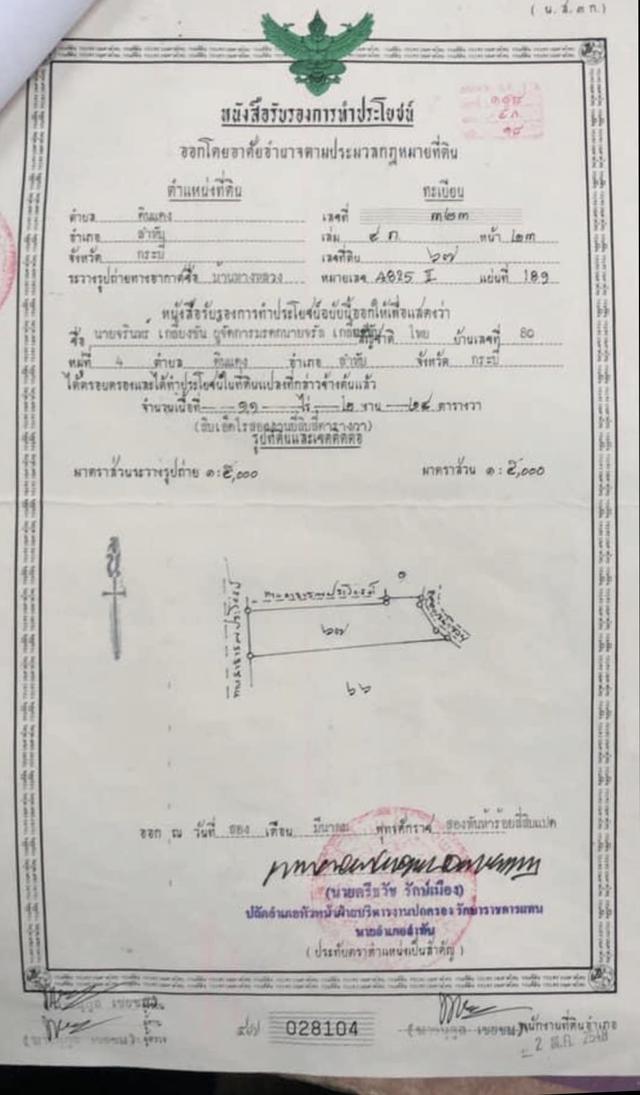 ( น.ส.๓ ก.)
หนังสือรับรองการทำประโยชน์
ออกโดยอาศัยอำนาจตามประมวลกฎหมายที่ดิน
ตำแหน่งที่ดิน
ทะเบียน
ตำบล ดินแดง เลขที่ ๓๒๓
อำเภอ ลำทับ เล่ม ๔ ก. หน้า ๒๓
จังหวัด กระบี่ เลขที่ดิน ๖๗
ระวางรูปถ่ายทางอากาศชื่อ บ้านทางหลวง หมายเลข 4825 II แผ่นที่ 189
หนังสือรับรองการทำประโยชน์ฉบับนี้ออกให้เพื่อแสดงว่า
ชื่อ นายจรินทร์ เกลี้ยงขัน ผู้จัดการมรดกนายจรัล สัญชาติ ไทย บ้านเลขที่ 80
หมู่ที่ 4 ตำบล ดินแดง อำเภอ ลำทับ จังหวัด กระบี่
ได้ครอบครองและได้ทำประโยชน์ในที่ดินแปลงที่กล่าวข้างต้นแล้ว
จำนวนเนื้อที่ ๑๑ ไร่ ๒ งาน ๒๔ ตารางวา
(สิบเอ็ดไร่สองงานยี่สิบสี่ตารางวา)
รูปที่ดินและเขตติดต่อ
มาตราส่วนระวางรูปถ่าย ๑ : ๕,๐๐๐ มาตราส่วน ๑ : ๕,๐๐๐
น
๑
ทางสาธารณประโยชน์
ทางสาธารณประโยชน์
๖๗
๖๖
ออก ณ วันที่ สอง เดือน มีนาคม พุทธศักราช สองพันห้าร้อยสี่สิบแปด
(นายตรีธวัช รักษ์เมือง)
ปลัดอำเภอหัวหน้าฝ่ายบริหารงานปกครอง รักษาราชการแทน
นายอำเภอลำทับ
( ประทับตราตำแหน่งเป็นสำคัญ )
028104
พนักงานที่ดินอำเภอ